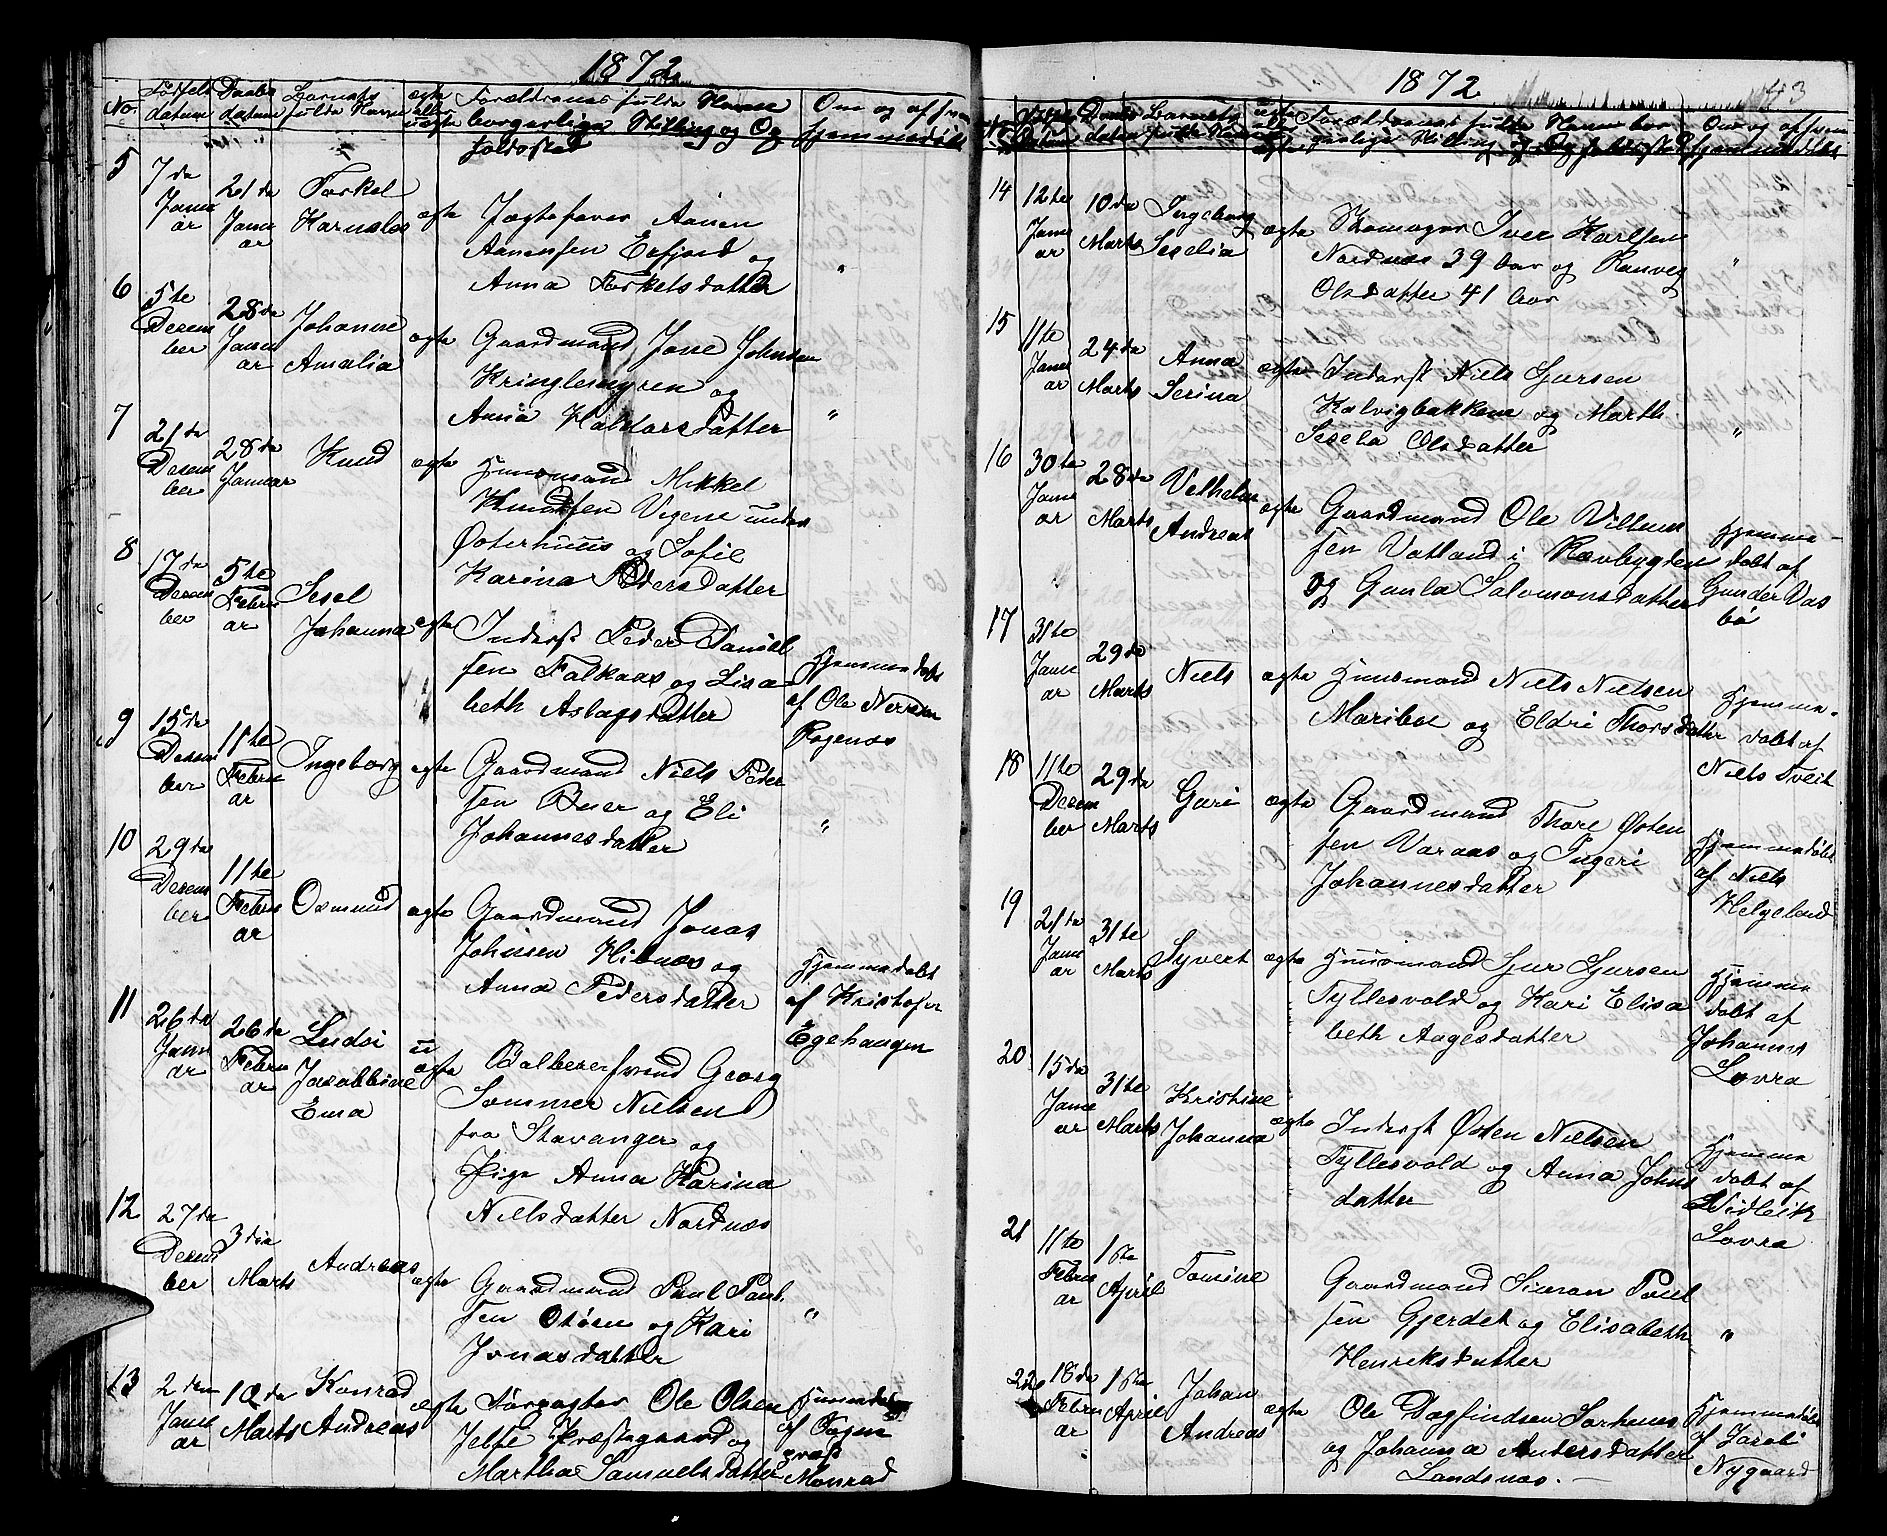 1872
No
Fødsels
datum
Daabs
datum
Barnets
fulde Navn
ægte
eller
uægte
Forældrenes fulde Navne
borgerlige Stilling og Op
holdssted
Om og af hvem
hjemmedøbt
5
7de
Janu
ar
21de
Janu
ar
Torkel
Karnelus
ægte
Jægtefører Aanen
Aanensen Erfjord og
Anna Torkelsdatter
"
6
5te
Desem
ber
28de
Janu
ar
Johanne
Amalia
ægte
Gaardmand Jone Johnsen
Kringlemyren og
Anna Haldorsdatter
"
7
21de
Desem
ber
28de
Januar
Knud
ægte
Huusmand Mikkel
Knudsen Vegene under
Østerhuus og Sofie
Karina Pedersdatter
8
17de
Desem
ber
5te
Febru
ar
Sesel
Johanna
ægte
Inderst Peder Daniel
sen Falkaas og Lisa
beth Aslagsdatter
Hjemmedøbt
af Ole Nerssen
Rogenæs
9
15de
Desem
ber
11te
Febru
ar
Ingeborg
ægte
Gaardmand Niels Peder
sen Buer og Eli
Johannesdatter
"
10
29de
Desem
ber
11te
Febru
ar
Osmund
ægte
Gaardmand Jonas
Johnsen Hidnæs og
Anna Pedersdatter
Hjemmedøbt
af Kristofer
Egehaugen
11
26de
Janu
ar
26de
Febru
ar
Ludsi
Jacobbine
Ema
u
ægte
Balberersvend Georg
Sommer Nielsen
fra Stavanger og
Pige Anna Karina
Nielsdatter Nordnæs
12
27de
Desem
ber
3die
Marts
Andreas
ægte
Gaardmand Paul Paul
sen Otøen og Kari
Jonasdatter
"
13
2den
Janu
ar
10de
Marts
Konrad
Andreas
ægte
Førpagter Ole Olsen
Jelse Præstegaard og
Martha Samuelsdatter
Hjemmedøbt
af Sogne
præst
Monrad
1872
43
No
Fødsels
datum
Daabs
datum
Barnets
fulde Navn
ægte
uægte
Forældrenes fulde Navne bor
gerlige Stilling og Opholdssted
Om og af hvem
hjemmedøbt
14
12te
Janu
ar
10de
Marts
Ingeborg
Seselia
ægte
Skomager Iver Karlsen
Nordnæs 39 Aar og Ranveg
Olsdatter 41 Aar
"
15
11te
Janu
ar
24de
Marts
Anna
Serina
ægte
Inderst Niels Sjursen
Kalvigbakkene og Marth
Sesela Olsdatter
"
16
30te
Janu
ar
28de
Marts
Velhelm
Andreas
ægte
Gaardmand Ole Villum
sen Vatland i Hævbygden
og Gunla Salomonsdatter
Hjemme-
døbt af
Gunder Vas
bø
17
31te
Janu
ar
29de
Marts
Niels
ægte
Huusmand Niels Nielsen
Mariboe og Eldri Thorsdatter
Hjemme-
døbt af
Niels Tveit
18
11te
Desem
ber
29de
Marts
Guri
ægte
Gaardmand Thore Østen
sen Varaas og Ingeri
Johannesdatter
Hjemmedøbt
af Niels
Helgeland
19
21de
Janu
ar
31te
Marts
Syvert
ægte
Huusmand Sjur Sjursen
Tyllesvold og Kari Elisa
beth Aagesdatter
Hjemme
døbt af
Johannes
Lovra
20
15de
Janu
ar
31te
Marts
Kristine
Johanna
ægte
Inderst Østen Nielsen
Tyllesvold og Anna Johns
datter
Hjemme
døbt af
Vidleik
Lovra
21
11te
Febru
ar
1ste
April
Tomine
Gaardmand Simon Poul
sen Gjerdet og Elisabeth
Henriksdatter
"
22
18de
Febru
ar
1ste
April
Johan
Andreas
ægte
Ole Dagfindsen Sørhuus
og Johanna Andersdatter
Sandsnæs. -
Hjemmedøbt
af Jacob
Nygaard